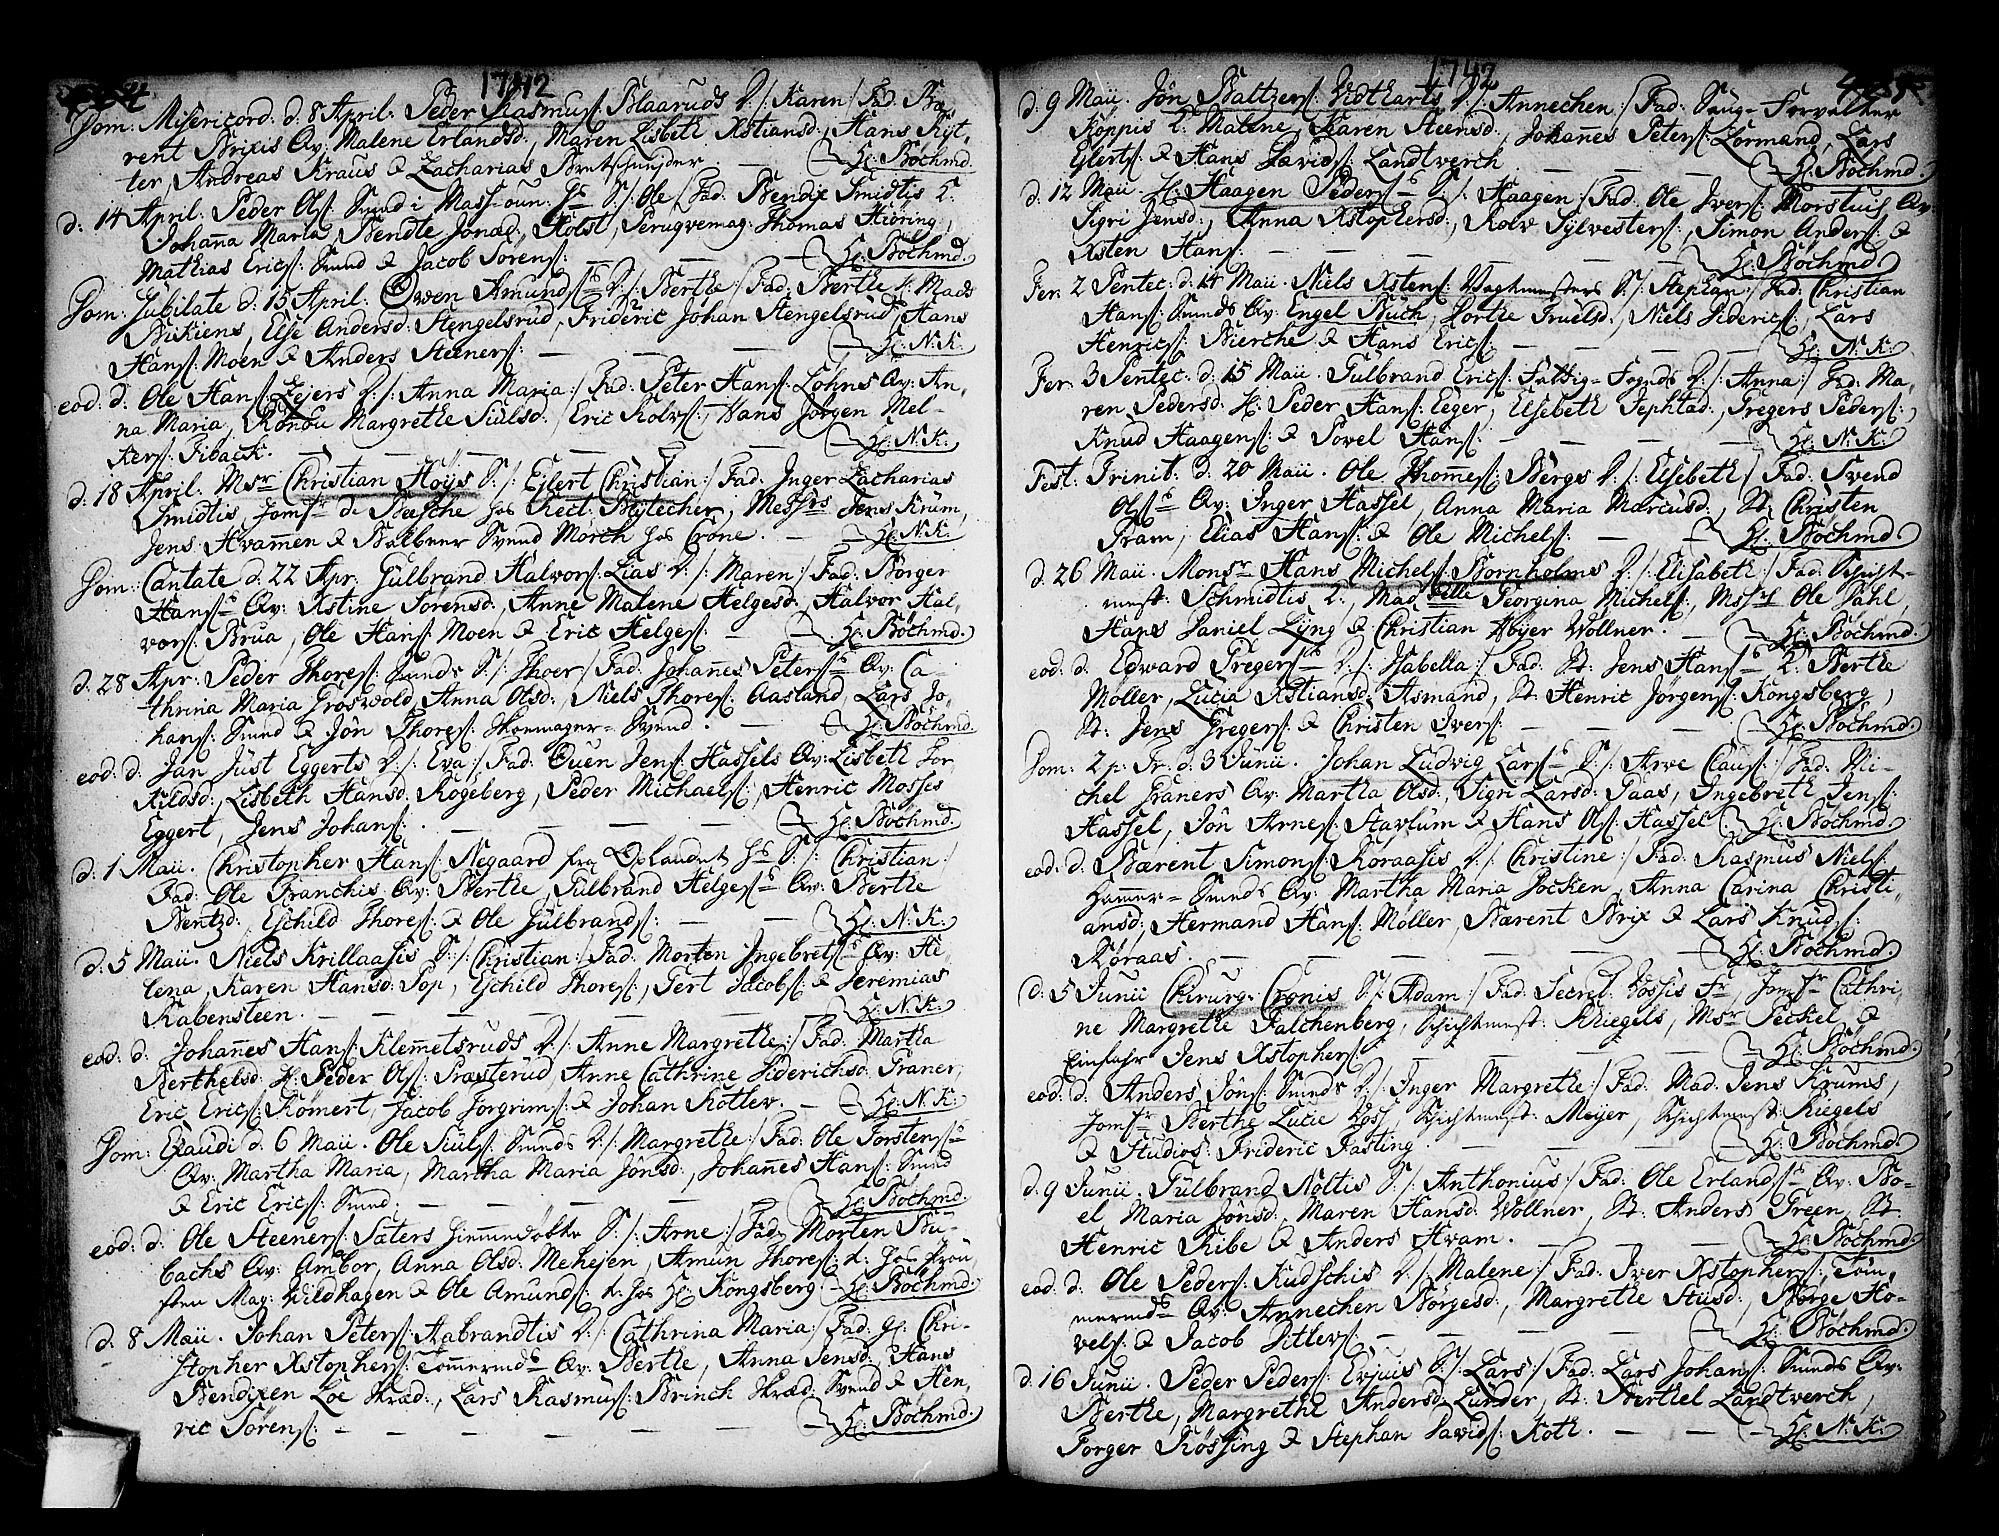 1742
Dom: Misericord: d. 8 April: Peder Rasmuss: Blaaruds D:/: Karen /: Fad: Bæ,
rent Brixis Qv: Malene Erlandsd:, Maren Lisbeth Xstiansd:, Hans Ryt,
ter, Andreas Kraus & Zacharias Bretschneider. — H: Bøchmd.
d: 14 April: Peder Ols: Smed i Mass-oun: hs S:/: Ole /: Fad: Bendix Smidtis L:
Johanna Maria, Bendte Jonæd:, Holst, Perugvemag: Thomas Hiøring,
Mathias Erics: Smed & Jacob Sørens: — — H: Bøchmd.
Dom: Jubilate d: 15 April: Owen Amunds: D:/: Berthe /: Fad: Berthe Mads
Else Andersd: Stengelsrud, Frideric Johan Stengelsrud, Hans
Hans: Moen & Anders Steeners: — — — H: N: K:
eod: d: Ole Hans: Zejers D:/: Anna Maria /: Fad: Peter Hans: Løhnes Qv: An,
na Maria, Margrethe Siulsd:, Eric Rolvs:, Hans Jørgen Mel-
kers: Fiback. — — — H: N. K:
d: 18 April: Msr Christian Høijs S:/: Ejlert Christian /: Fad: Inger Zacharias
Smidtis, Jomfr de Besche hos Rect: Blytecher, Messrs Jens Krüm,
Jens Hvammen & Balbeer Svend Mørch hos Crone. — H: N. K:
Dom: Cantate d: 22 Apr: Gulbrand Halvors: Lias D:/: Maren /: Fad: Børger
Hans: Qv: Xstine Sørensd:, Anne Malene Helgesd:, Halvor Hal,
vors: Brua, Ole Hans: Moen & Eric Helges: — H: Bøchmd.
d: 28 Apr: Peder Thores: Smeds S:/: Thoer /: Fad: Johannes Peters: Qv: Ca-
thrina Maria Groswold, Anna Olsd:, Niels Thores: Aasland, Lars Jo,
hans: Smed & Jøn Thores: Skoemager-Svend. — H: Bøchmd.
eod: d: Jan Just Eggerts D:/: Eva /: Fad: Ouen Jens: Hassels Qv: Lisbeth Tor
kildsd:, Lisbeth Hansd: Kogeberg, Peder Michaels:, Henric Mosses
Eggert, Jens Johans: — — — H: Bøchmd.
d: 1 Maii. Christopher Hans: Negaard fra Oplandet hs S:/: Christian /:
Fad: Ole Franchis Qv: Berthe, Gulbrand Helges: Qv: Berthe
Bentzd:, Eschild Thores: & Ole Gulbrands: — — H: N. K:
d: 5 Maii. Niels Krillaasis S:/: Christian /: Fad: Morten Ingebrets: Qv: He,
lena, Karen Hansd: Top, Eschild Thores:, Tert Jacobs: & Jeremias
Rabensteen. — — — H: N. K:
eod: d: Johannes Hans: Klemmetsruds D:/: Anne Margrethe /: Fad: Martha
Berthelsd: H: Peder Ols: Præsterud, Anne Cathrine Diderichsd: Traner,
Eric Erics: Rømert, Jacob Jorgrims: & Johan Kotlev. — H: N: K:
Dom: Exaudi d: 6 Maii. Ole Siuls: Smeds D:/: Margrethe /: Fad: Ole Torstens:
Qv: Martha Maria, Martha Maria Jønsd:, Johannes Hans: Smed
& Eric Erics: Smed. — — — H: Bøchmd.
eod: d: Ole Steeners: Sæters S:/: Arne /: Fad: Morten Bu-
bachs Qv: Ambor, Anna Olsd: Mehejen, Amun Thores: hos Prou
sten Mag: Wildhagen & Ole Amunds: hos H: Kongsberg. H: Bøchmd.
d: 8 Maii. Johan Peters: Aabrandtis D:/: Cathrina Maria /: Fad: H: Chri-
stopher Xstophers: Tømmermds Qv: Berthe, Anna Jensd:, Hans
Bendixen Loe Skræd:, Lars Rasmus: Brinch Skræd: Svend & Hen,
ric Sørens: — — — H: Bøchmd.
1742
d: 9 Maii. Jøn Baltzers: Vidtharts D:/: Annechen /: Fad: Saug-Forvalter
Køppis L: Malene, Karen Steensd:, Johannes Peters: Lormand, Lars
Ejlerts: & Hans Davids: Landtverch — — H: Bøchmd.
d: 12 Maii. H: Haagen Peders: S:/: Haagen /: Fad: Ole Ivers: Morstuis Qv:
Sigri Jensd:, Anna Xstophersd:, Rolv Sylvesters:, Simon Anders: &
Xsten Hans: — — — H: Bøchmd.
Fer: 2 Pentec: d: 14 Maii. Niels Xstens: Vagtmesters S:/: Stephan /: Fad: Christian
Hans: Smeds Qv: Engel Buch, Dorthe Truelsd:, Niels Diderics:, Lars
Henrics: Bierche & Hans Erics: — — — H: N. K:
Fer: 3 Pentec: d: 15 Maii. Gulbrand Erics: Fattig-Fogeds D:/: Anna /: Fad: Ma,
ren Pedersd: H: Peder Hans: Eeger, Elsebeth Jephtad:, Gregers Peders:,
Knud Haagens: & Povel Hans: — — — H: N: K:
Fest: Trinit: d: 20 Maii. Ole Thomes: Bergs D:/: Elsebeth /: Fad: Svend
Ols: Qv: Inger Hassel, Anna Maria Marcusd:, St: Christen
Pram, Elias Hans: & Ole Michels: — — H: Bøchmd.
d: 26 Maii. Monsr Hans Michels: Bornholms D:/: Elisabeth /: Fad: Schicht-
mest: Schmidtis L:, Madlle Georgina Michels:, Mssrs Ole Dahl,
Hans Daniel Lyng & Christian Høyer Wollner. — H: Bøchmd.
eod: d: Edward Gregers: D:/: Isabella /: Fad: St: Jens Hans: L: Berthe
Møller, Lucia Xstiansd: Asmand, St: Henric Jørgens: Kongsberg,
St: Jens Gregers: & Christen Ivers: — — H: Bøchmd.
Dom: 2 p: Tr: d: 3 Junii. Johan Ludvig Lars: S:/: Arve Claus: /: Fad: Mi-
chel Graners Qv: Martha Olsd:, Sigri Larsd: Paas, Ingebreth Jens:
Hassel, Jøn Arnes: Stavlum & Hans Ols: Hassel H: Bøchmd.
eod: d: Bærent Simons: Koraasis D:/: Christine /: Fad: Rasmus Niels:
Hammer-Smeds Qv: Martha Maria Pocken, Anna Carina Christi,
ansd:, Hermand Hans: Møller, Bærent Brix & Lars Knuds:
Køraas. — — — H: Bøchmd.
d: 5 Junii Chirurg: Cronis S:/: Adam /: Fad: Secret: Vossis Fr:, Jomfr Cathri,
ne Margrethe Falchenberg, Schichtmest: Riegels, Msr Peckel &
Einfahr Jens Xstophers: — — — H: Bøchmd.
eod: d: Anders Jøns: Smeds D:/: Inger Margrethe /: Fad: Mad: Jens Krums,
Jomfr Berthe Lucie Vos, Schichtmest: Meyer, Schichtmest: Riegels
& Studios: Frideric Fasting — — — H: Bøchmd.
d: 9 Junii. Gulbrand Noltis S:/: Anthonius /: Fad: Ole Erlands: Qv: Bo-
el Maria Jønsd:, Maren Hansd: Wollner, St: Anders Green, St:
Henric Ribe & Anders Hvam. — — H: Bøchmd.
eod: d: Ole Peders: Kudschis D:/: Malene /: Fad: Iver Xstophers:, Tøm,
mermds Qv: Annechen Børgesd:, Margrethe Stusd:, Børge Ho-
vels: & Jacob Ditlevs: — — — H: Bøchmd.
d: 16 Junii. Peder Peders: Evjuis S:/: Lars /: Fad: Lars Johans: Smeds Qv:
Berthe, Margrethe Andersd: Lunder, St: Berthel Landtverch,
Torger Røssing & Stephan Davids: Koth. — — H: N: K: